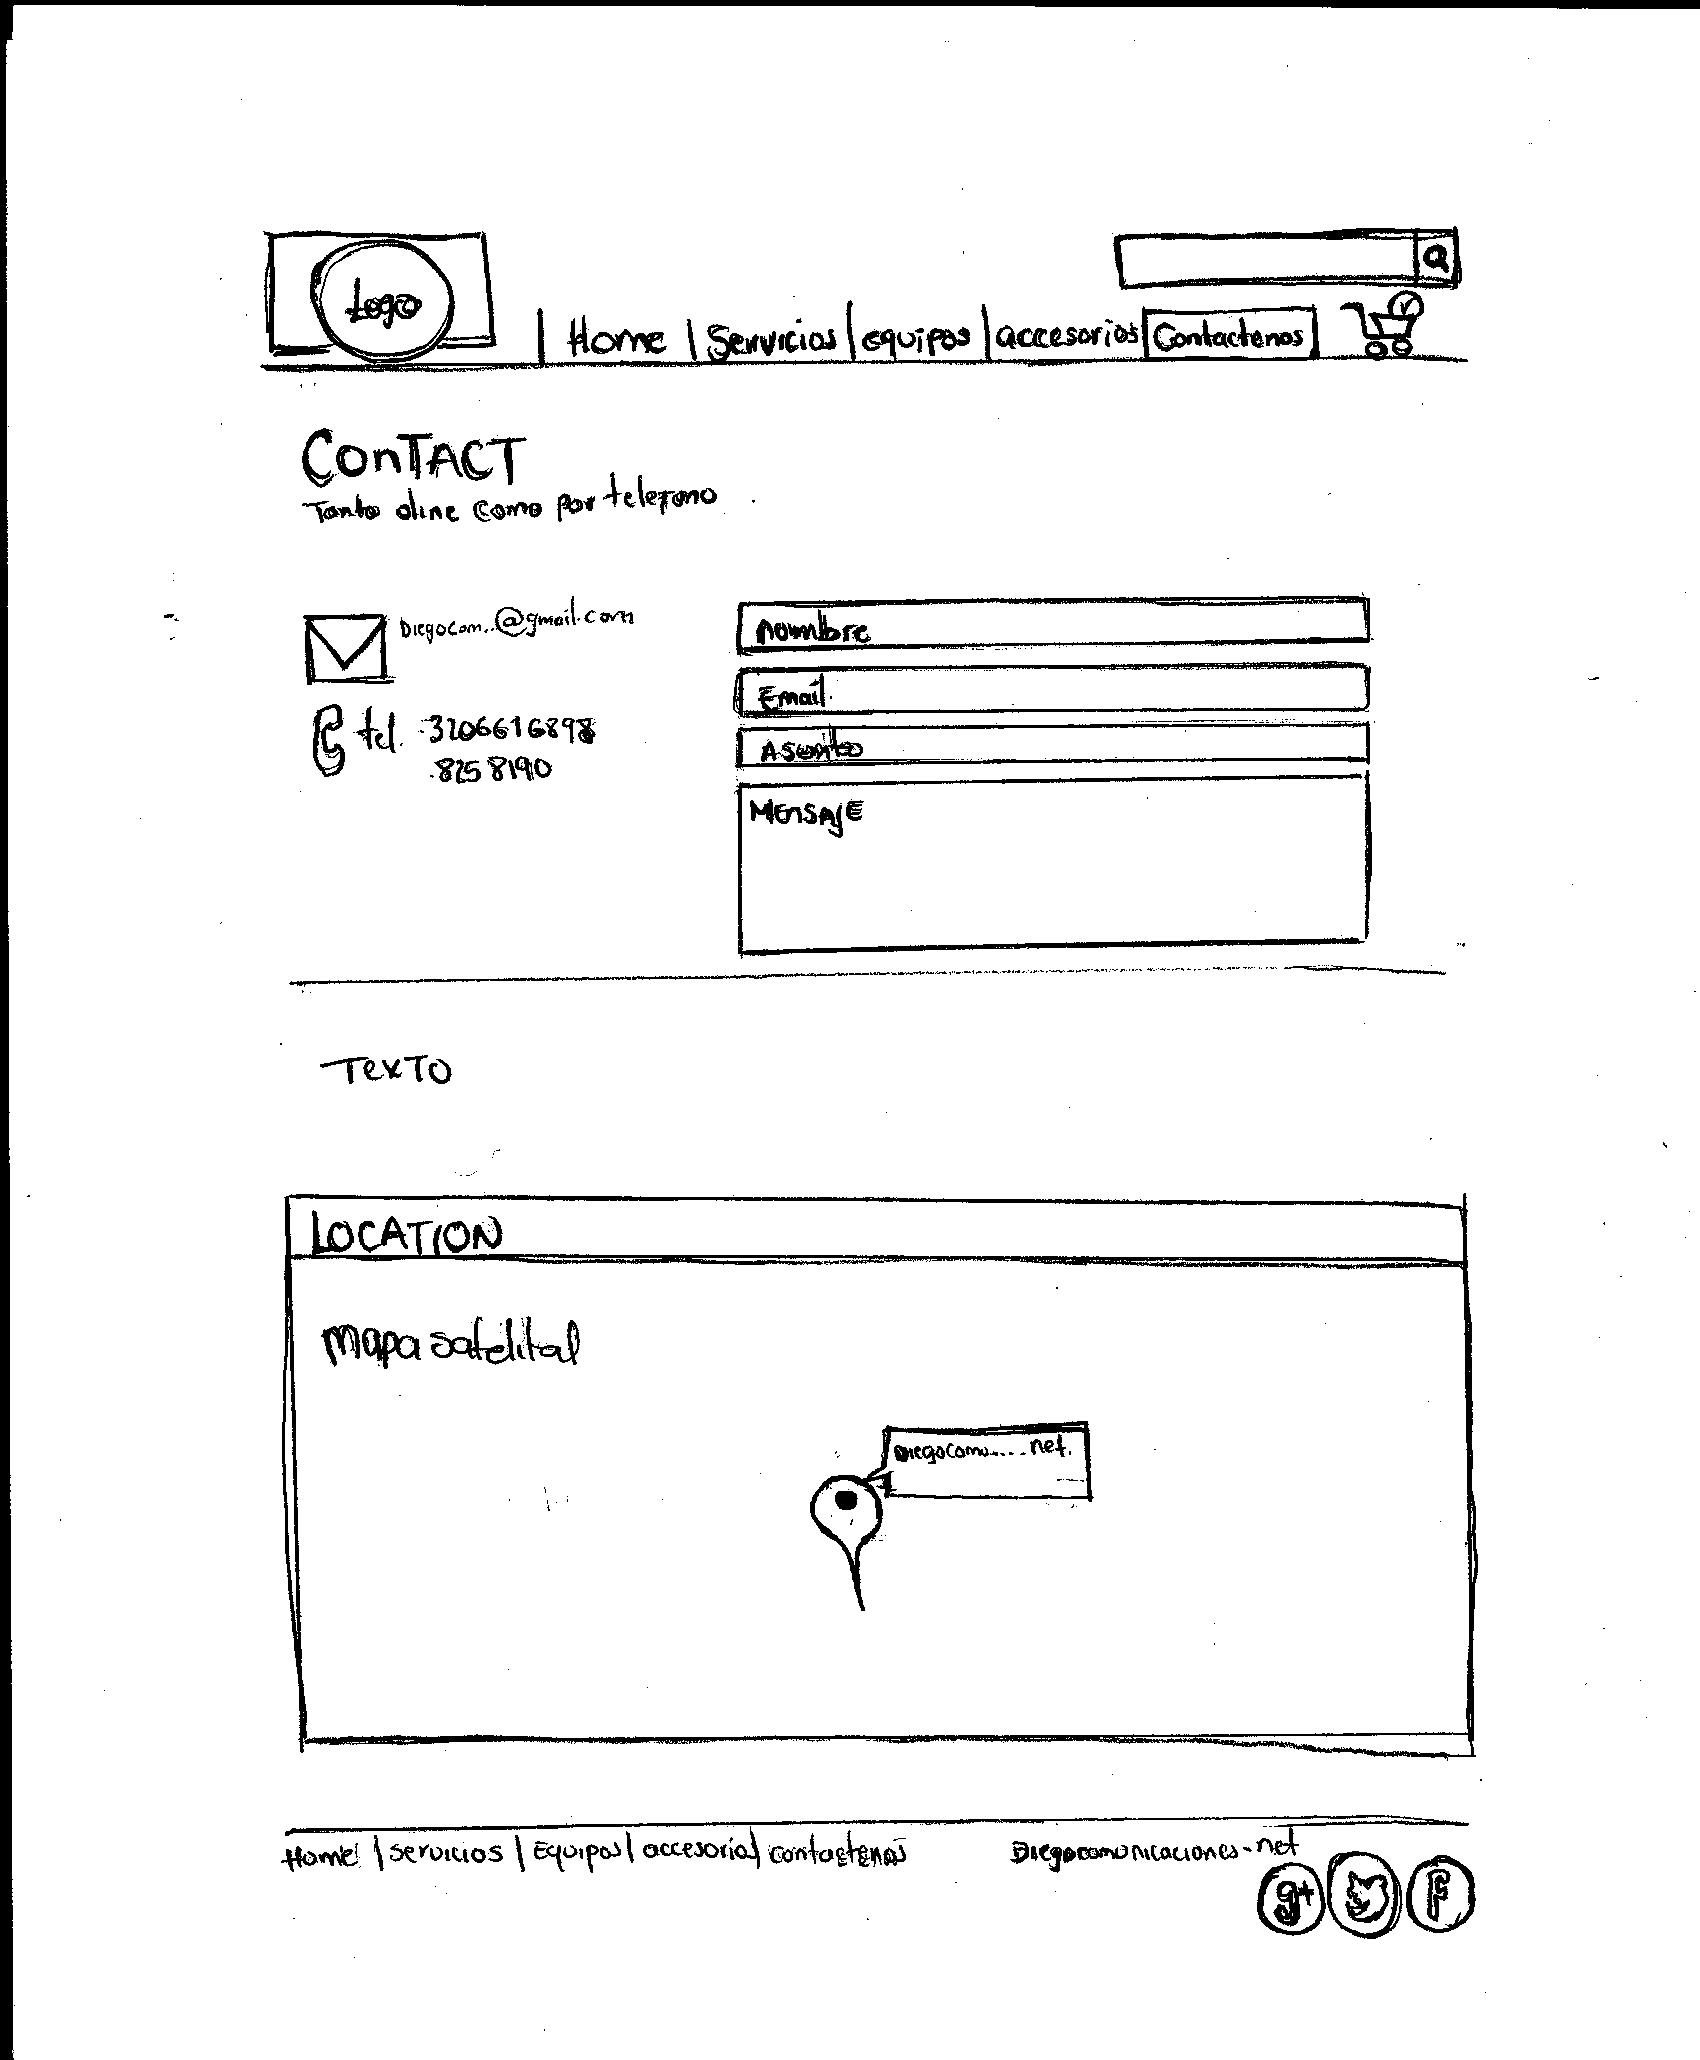 Logo
| Home | Servicios | equipos | accesorios | Contactenos
CONTACT
Tanto oline como por telefono
DiegoCom..@gmail.com
tel. 3206616898
8258190
nombre
Email
Asunto
MENSAJE
TEXTO
LOCATION
mapa satelital
DiegoComu.....net.
Home | servicios | Equipos | accesorios | contactenos
Diegocomunicaciones.net
g+ F